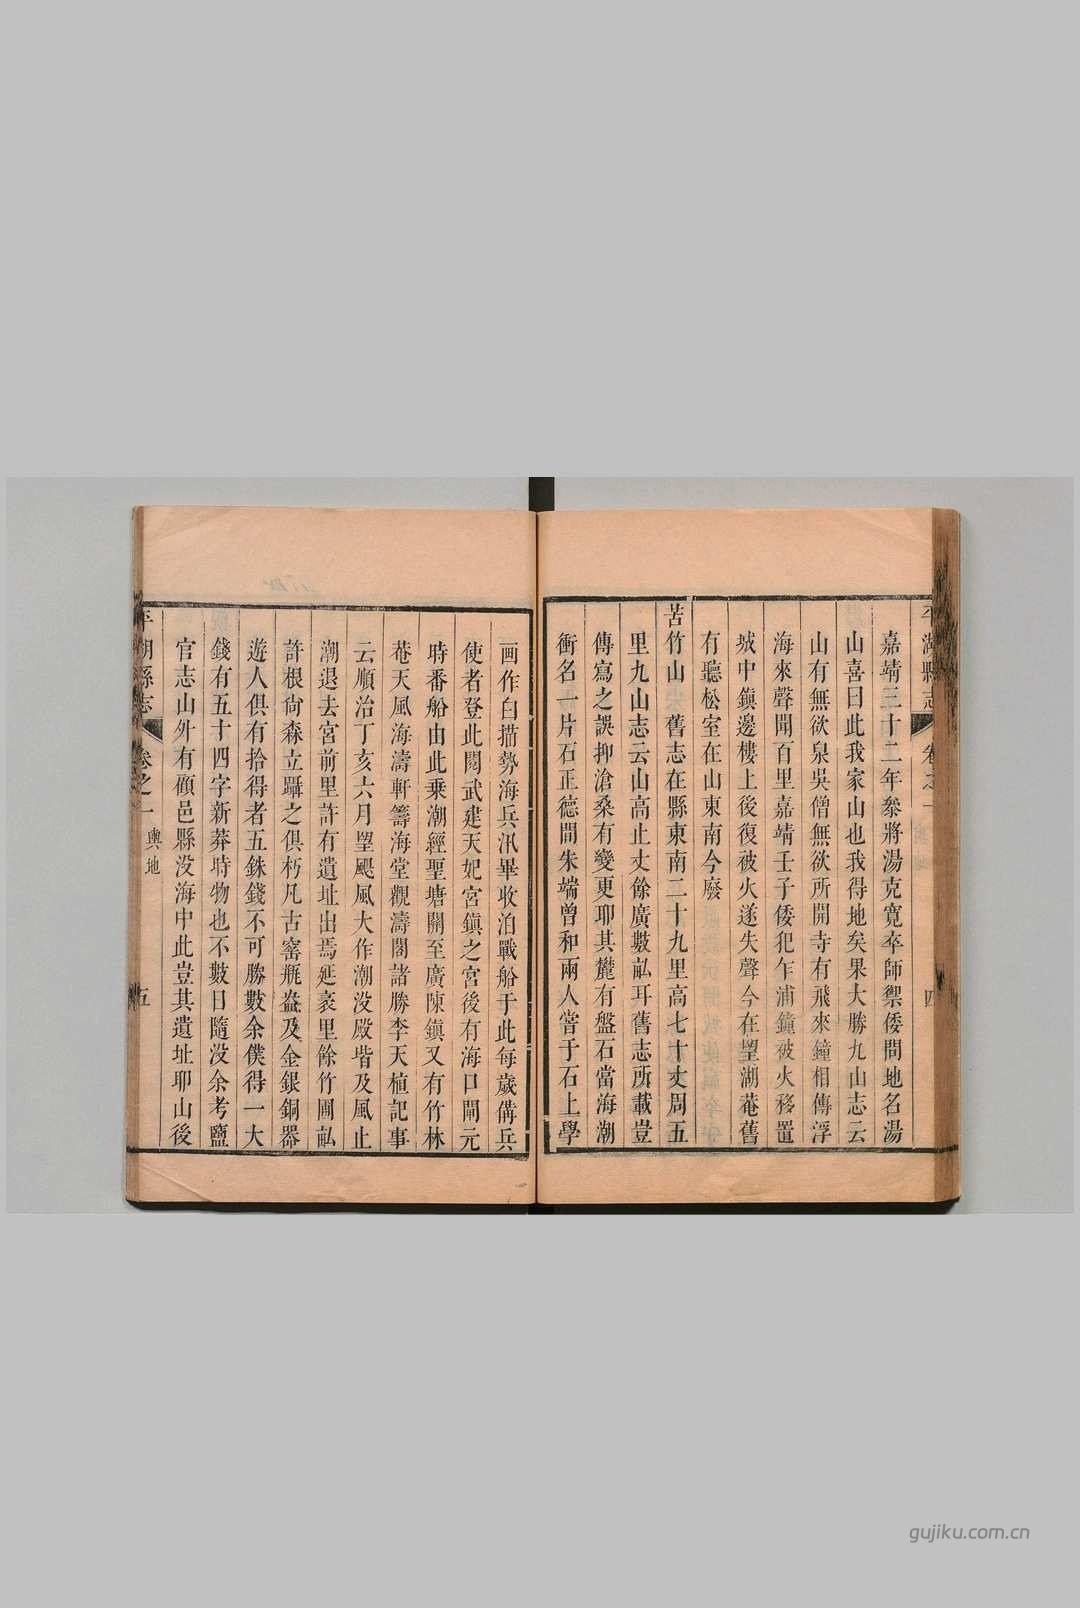 平湖縣志 卷之一 四
嘉靖三十二年叅將湯克寛卒師禦倭問地名湯
山喜曰此我家山也我得地矣果大勝九山志云
山有無欲泉吳僧無欲所開寺有飛來鐘相傳浮
海來聲聞百里嘉靖壬子倭犯乍浦鐘被火移置
城中鎭邊樓上後復被火遂失聲今在朢湖菴舊
有聽松室在山東南今廢
苦竹山舊志在縣東南二十九里高七十丈周五
里九山志云山高止丈餘廣數畆耳舊志所載豈
傳寫之誤抑滄桑有變更耶其麓有盤石當海潮
衝名一片石正德間朱端曾和兩人嘗于石上學
画作白描勢海兵汛畢收泊戰船于此每歳備兵
使者登此閱武建天妃宮鎭之宮後有海口閘元
時番船由此乗潮經聖塘關至廣陳鎭又有竹林
菴天風海濤軒籌海堂觀濤閣諸勝李天植記事
云順治丁亥六月朢颶風大作潮没殿堦及風止
潮退去宮前里許有遺址出焉延袤里餘竹圃畆
許根尙森立躡之俱朽凡古窰瓶盎及金銀銅器
遊人俱有拾得者五銖錢不可勝數余僕得一大
錢有五十四字新莽時物也不數日隨没余考鹽
官志山外有顧邑縣没海中此豈其遺址耶山後
平湖縣志 卷之一 輿地 五
gujiku.com.cn